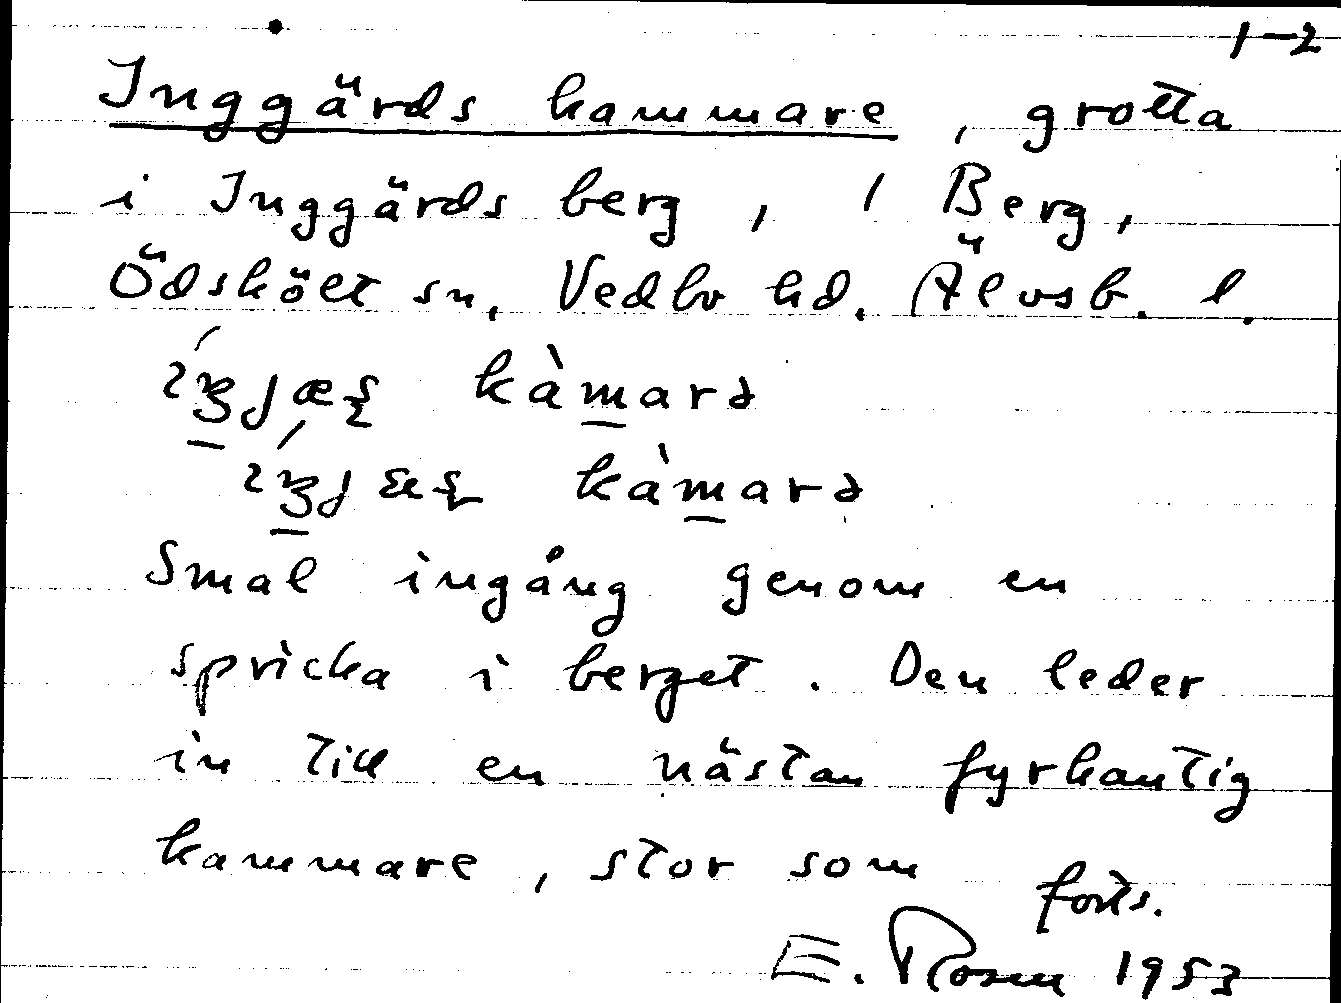 1–2
Inggärds kammare, grotta
i Inggärds berg, 1 Berg,
Ödskölt sn, Vedbo hd. Älvsb. l.
kàmarə
kàmarə
Smal ingång genom en
spricka i berget. Den leder
in till en nästan fyrkantig
kammare, stor som
forts.
E. Rosen 1953